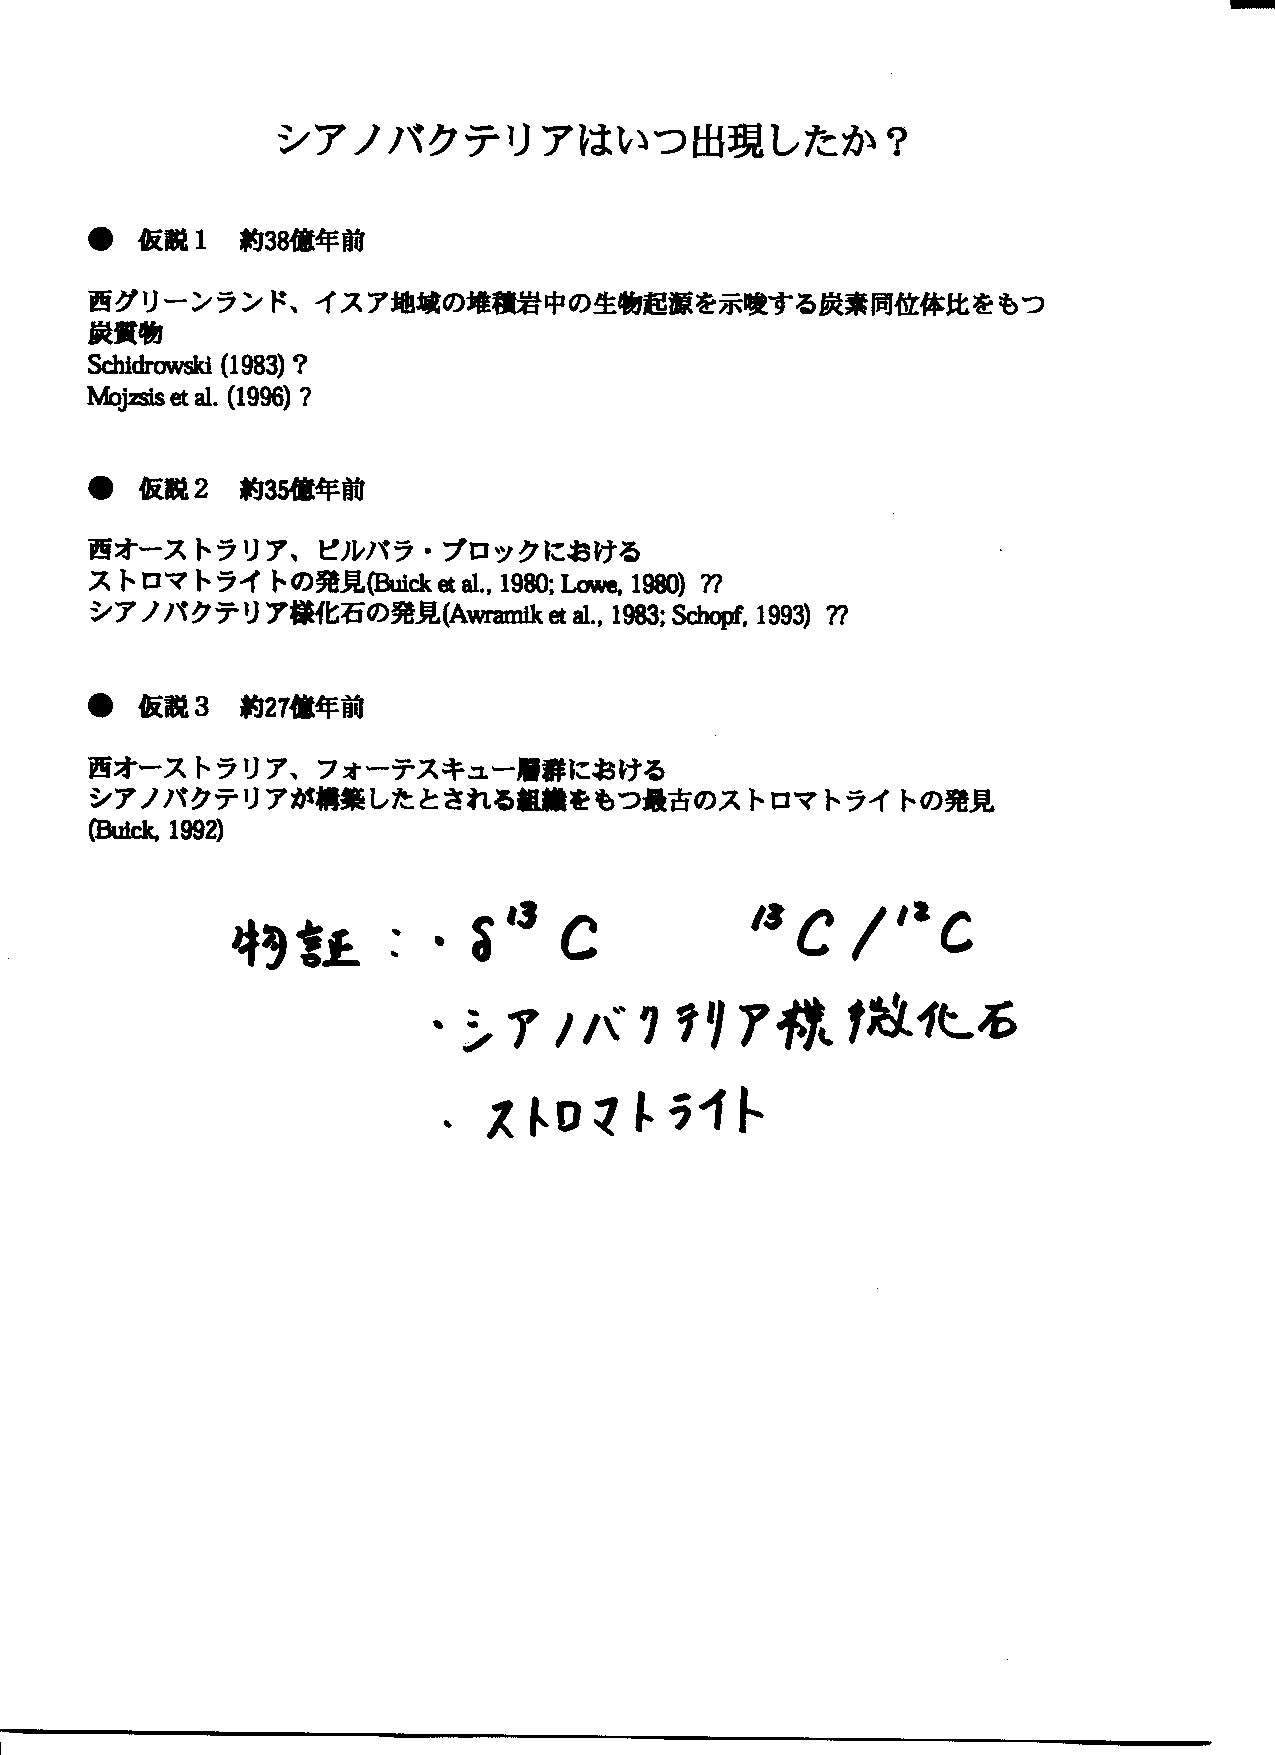 シアノバクテリアはいつ出現したか？
● 仮説１　約38億年前
西グリーンランド、イスア地域の堆積岩中の生物起源を示唆する炭素同位体比をもつ
炭質物
Schidrowski (1983) ?
Mojzsis et al. (1996) ?
● 仮説２　約35億年前
西オーストラリア、ピルバラ・ブロックにおける
ストロマトライトの発見(Buick et al., 1980; Lowe, 1980) ??
シアノバクテリア様化石の発見(Awramik et al., 1983; Schopf, 1993) ??
● 仮説３　約27億年前
西オーストラリア、フォーテスキュー層群における
シアノバクテリアが構築したとされる組織をもつ最古のストロマトライトの発見
(Buick, 1992)
物証：・δ¹³C　¹³C/¹²C
・シアノバクテリア様微化石
・ストロマトライト